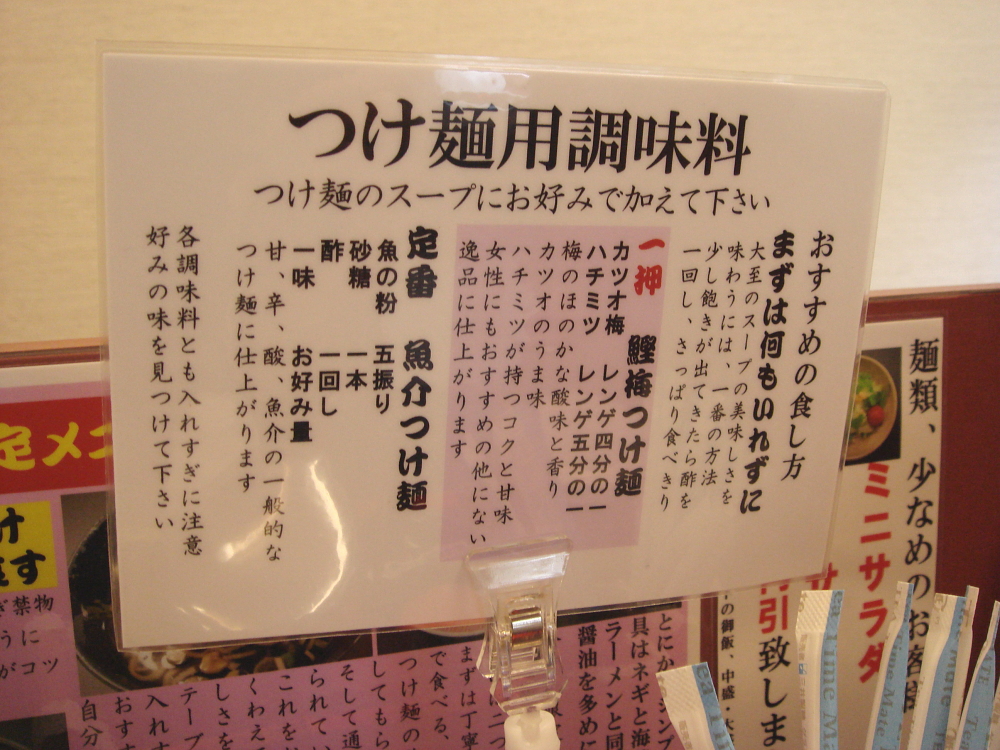 つけ麺用調味料
つけ麺のスープにお好みで加えて下さい
おすすめの食し方
まずは何もいれずに
大至のスープの美味しさを
味わうには、一番の方法
少し飽きが出てきたら酢を
一回し、さっぱり食べきり
一押 鰹梅つけ麺
カツオ梅 レンゲ四分の一
ハチミツ レンゲ五分の一
梅のほのかな酸味と香り
カツオのうま味
ハチミツが持つコクと甘味
女性にもおすすめの他にない
逸品に仕上がります
定番 魚介つけ麺
魚の粉 五振り
砂糖 一本
酢 一回し
一味 お好み量
甘、辛、酸、魚介の一般的な
つけ麺に仕上がります
各調味料とも入れすぎに注意
好みの味を見つけて下さい
麺類、少なめのお客様
ミニサラダ
引致しま
の御飯、中盛・大
とにかシンプ
具はネギと海
ラーメンと同
醤油を多めに
まずは丁寧
で食べる、
つけ麺の
してもら
そして通
られてい
これをお
くわえて
しさを
テーブ
入れす
おすす
自分
定メニ
け
す
ぎ禁物
うに
がコツ